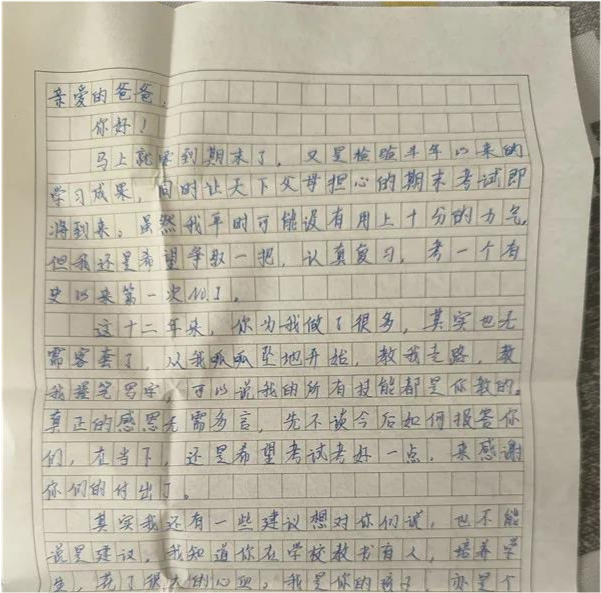 亲爱的爸爸：
你好！
马上就要到期末了，又是检验半年以来的
学习成果，同时让天下父母担心的期末考试即
将到来。虽然我平时可能没有用上十分的力气，
但我还是希望争取一把，认真复习，考一个有
史以来第一次NO.1。
这十二年来，你为我做了很多，其实也无
需客套了，从我呱呱坠地开始，教我走路，教
我握笔写字，可以说我的所有技能都是你教的。
真正的感恩无需多言，先不谈今后如何报答你
们，在当下，还是希望考试考好一点，来感谢
你们的付出了。
其实我还有一些建议想对你们说，也不能
说是建议，我知道你在学校教书育人，培养学
生，花了很大的心血。我是你的孩子，亦是个